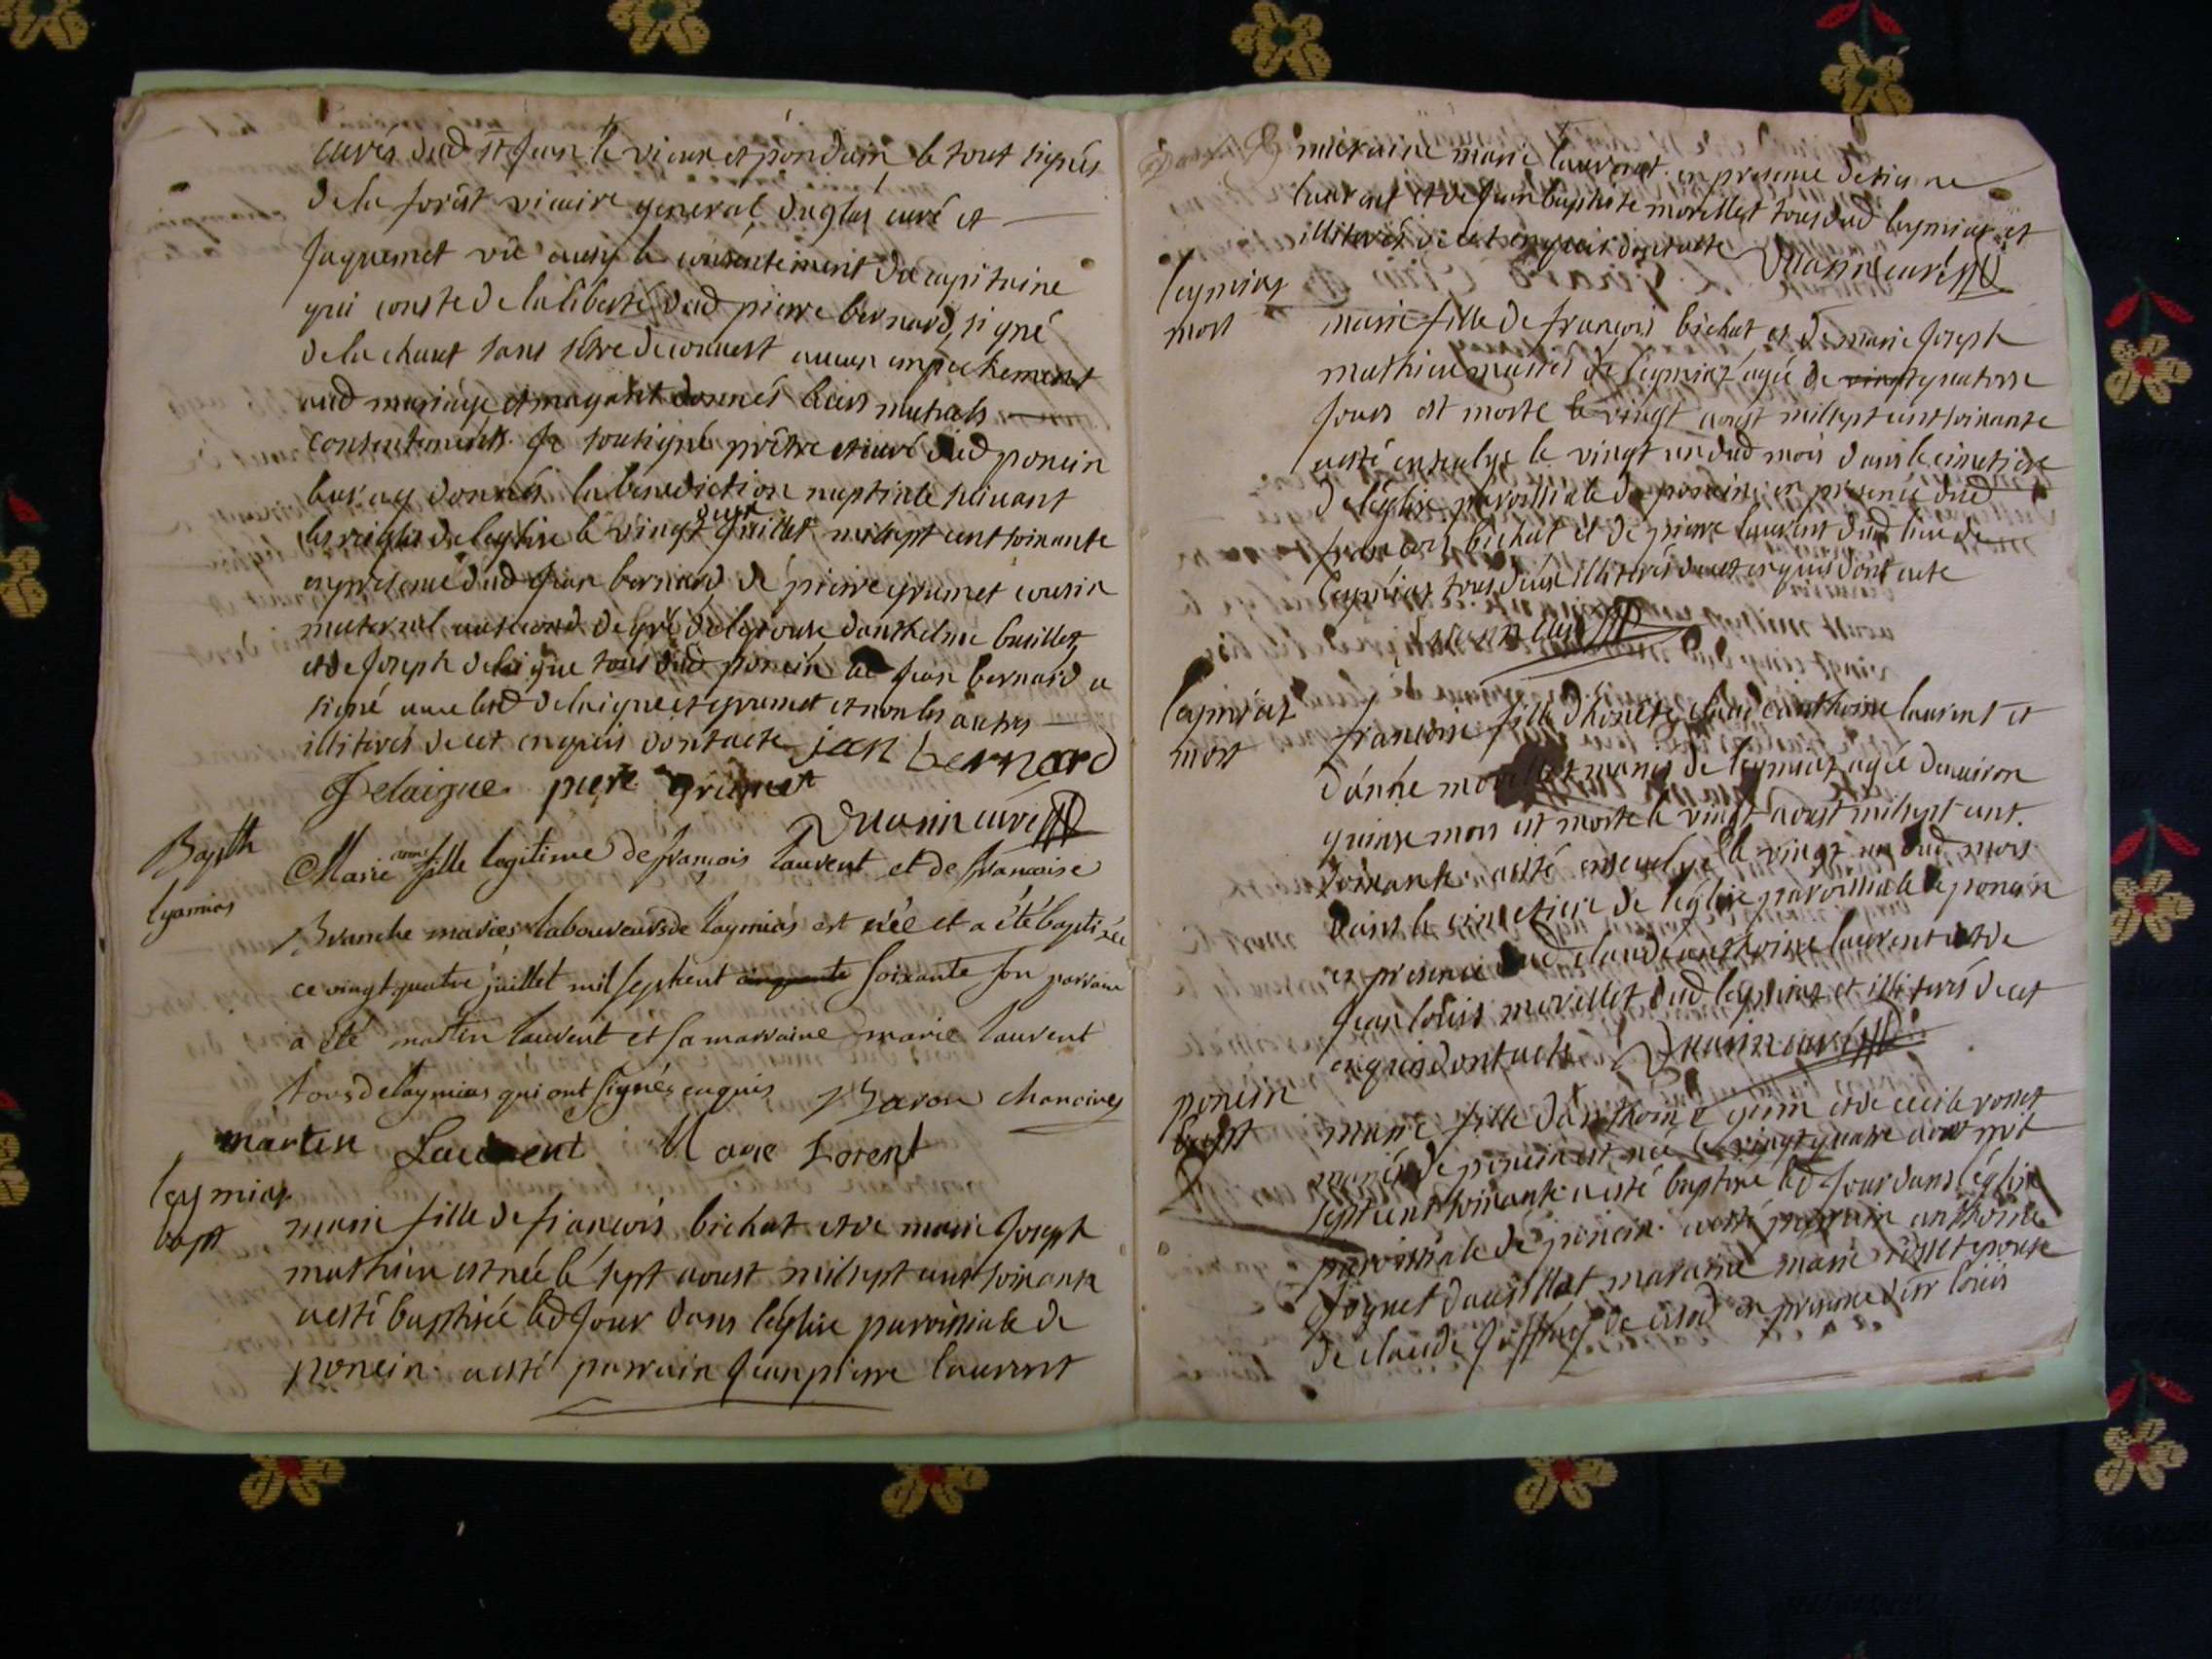 curés dud st Jean le vieux et pondain le tout signés
de la forêt vicaire general duglas curé et
Jaquemet vû aussy le consentement du capitaine
qui conste de la liberté dud pierre bernard, signé
de la chaut sans s'être decouvert aucun empechement
aud mariage et m'ayant donnés leurs mutuels
consentements Je soussigné prêtre et curé dud poncin
leur ay donnés la benediction nuptiale suivant
les reigles de leglise le vingt deux Juillet mil sept cent soixante
en presence dud Jean bernard de pierre grumet cousin
maternel au second degré de lepouse d'anthelme busillet
et de Joseph delaigue tous dud poncin Jean bernard a
signé avec led delaigue et grumet et non les autres
illiterés de cet enquis dont acte jean bernard
J Delaigue piere grumet
curé
Baptt
lyamias
Marie anne fille legitime de françois laurent et de francoise
Branche mariés laboureurs de laymias est née et a été baptisée
ce vingt quatre juillet mil sept cent cinquante soixante son parrain
a été martin laurent et sa marraine marie laurent
tous de laymias qui ont signés enquis Baron chanoines
martin Laurent Marie Lorent
leymias
bapt
marie fille de francois bichat et de marie Joseph
mathieu est née le sept aoust mil sept cent soixante
a esté baptisée led Jour dans l'église paroissiale de
poncin a esté parrain Jean pierre laurent
maraine marie laurent en presence detienne
laurent et de Jean baptiste morellet tous dud leymias et
illiterés de cet enquis dont acte curé
leymias
mort
marie fille de francois bichat et de marie Joseph
mathieu mariés de leymiaz agée de vingt quatorse
Jours est morte le vingt aoust mil sept cent soixante
a esté ensevelye le vingt un dud mois dans le cimetiere
de l'église paroissiale de poncin en presence dud
francois bichat et de pierre laurent dud lieu de
leymias tous deux illiterés de cet enquis dont acte
curé
leymiaz
mort
francoise fille d'honête claude anthoine laurent et
d'anne morellet mariés de leymiaz agée denviron
quinse mois est morte le vingt aoust mil sept cent
soixante a esté ensevelye le vingt un dud mois
dans le cimetiere de l'église paroissiale de poncin
en presence dud claude anthoine laurent et de
Jean louis morellet dud leymias et illiterés de cet
enquis dont acte curé
poncin
bapt
marie fille d'anthoine genin et de cecile rosset
mariés de poncin est née le vingt quatre aout mil
sept cent soixante a esté baptisée led Jour dans l'église
paroissiale de poncin a esté parrain anthoine
maraine marie rosset epouse
de claude de cisod en presence de sr louis